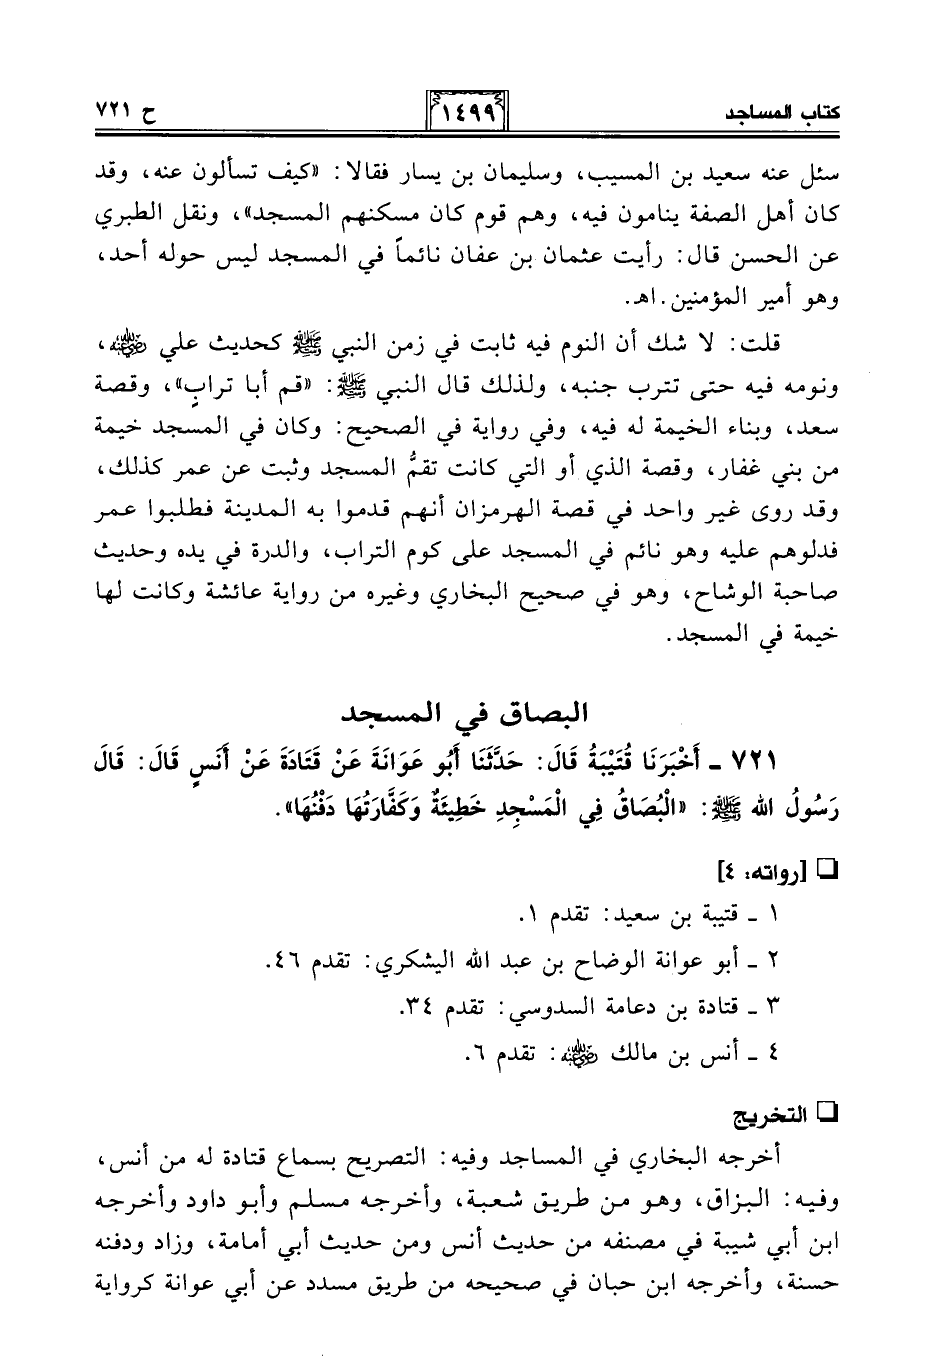 كتاب المساجد ١٤٩٩ ح ٧٢١
سئل عنه سعيد بن المسيب، وسليمان بن يسار فقالا: «كيف تسألون عنه، وقد
كان أهل الصفة ينامون فيه، وهم قوم كان مسكنهم المسجد»، ونقل الطبري
عن الحسن قال: رأيت عثمان بن عفان نائماً في المسجد ليس حوله أحد،
وهو أمير المؤمنين.اهـ.
قلت: لا شك أن النوم فيه ثابت في زمن النبي ﷺ كحديث علي رضي الله عنه،
ونومه فيه حتى تترب جنبه، ولذلك قال النبي ﷺ: «قم أبا ترابٍ»، وقصة
سعد، وبناء الخيمة له فيه، وفي رواية في الصحيح: وكان في المسجد خيمة
من بني غفار، وقصة الذي أو التي كانت تقمُّ المسجد وثبت عن عمر كذلك،
وقد روى غير واحد في قصة الهرمزان أنهم قدموا به المدينة فطلبوا عمر
فدلوهم عليه وهو نائم في المسجد على كوم التراب، والدرة في يده وحديث
صاحبة الوشاح، وهو في صحيح البخاري وغيره من رواية عائشة وكانت لها
خيمة في المسجد.
البصاق في المسجد
٧٢١ ـ أَخْبَرَنَا قُتَيْبَةُ قَالَ: حَدَّثَنَا أَبُو عَوَانَةَ عَنْ قَتَادَةَ عَنْ أَنَسٍ قَالَ: قَالَ
رَسُولُ الله ﷺ: «الْبُصَاقُ فِي الْمَسْجِدِ خَطِيئَةٌ وَكَفَّارَتُهَا دَفْنُهَا».
❑ [رواته: ٤]
١ ـ قتيبة بن سعيد: تقدم ١.
٢ ـ أبو عوانة الوضاح بن عبد الله اليشكري: تقدم ٤٦.
٣ ـ قتادة بن دعامة السدوسي: تقدم ٣٤.
٤ ـ أنس بن مالك رضي الله عنه: تقدم ٦.
❑ التخريج
أخرجه البخاري في المساجد وفيه: التصريح بسماع قتادة له من أنس،
وفيه: البزاق، وهو من طريق شعبة، وأخرجه مسلم وأبو داود وأخرجه
ابن أبي شيبة في مصنفه من حديث أنس ومن حديث أبي أمامة، وزاد ودفنه
حسنة، وأخرجه ابن حبان في صحيحه من طريق مسدد عن أبي عوانة كرواية